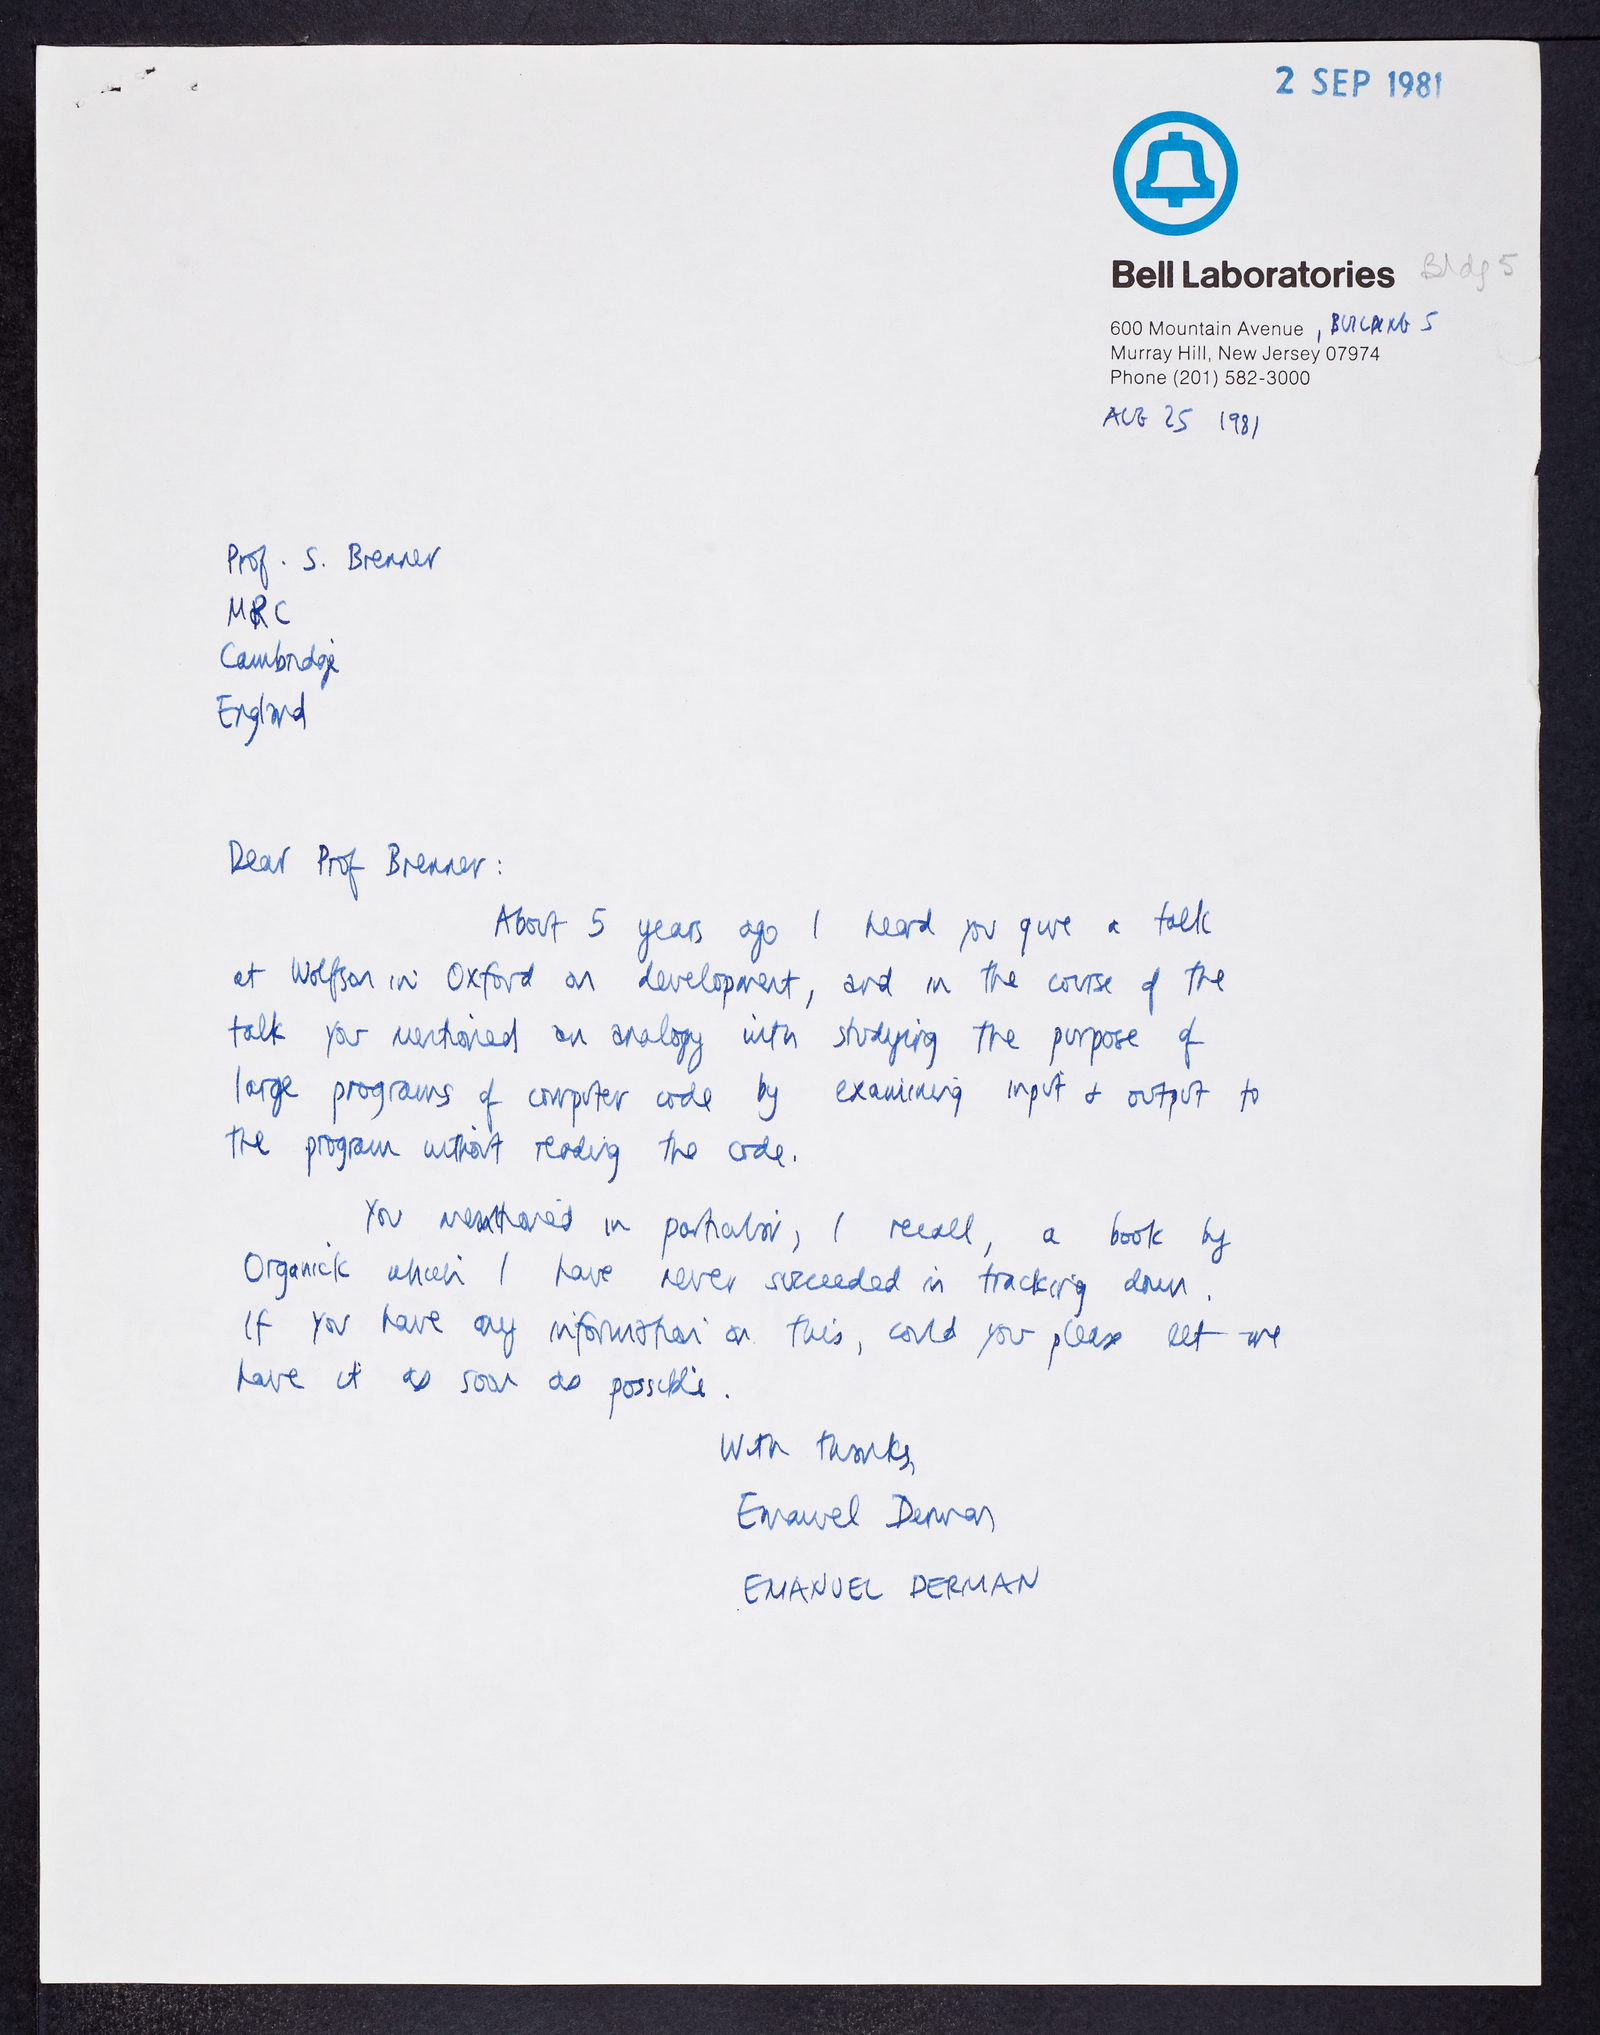 2 SEP 1981
Bell Laboratories
Bldg 5
600 Mountain Avenue, BUILDING 5
Murray Hill, New Jersey 07974
Phone (201) 582-3000
AUG 25 1981
Prof. S. Brenner
MRC
Cambridge
England
Dear Prof Brenner:
About 5 years ago I heard you give a talk
at Wolfson in Oxford on development, and in the course of the
talk you mentioned an analogy with studying the purpose of
large programs of computer code by examining input & output to
the program without reading the code.
You mentioned in particular, I recall, a book by
Organick which I have never succeeded in tracking down.
If you have any information on this, could you please let me
have it as soon as possible.
With thanks,
Emanuel Derman
EMANUEL DERMAN